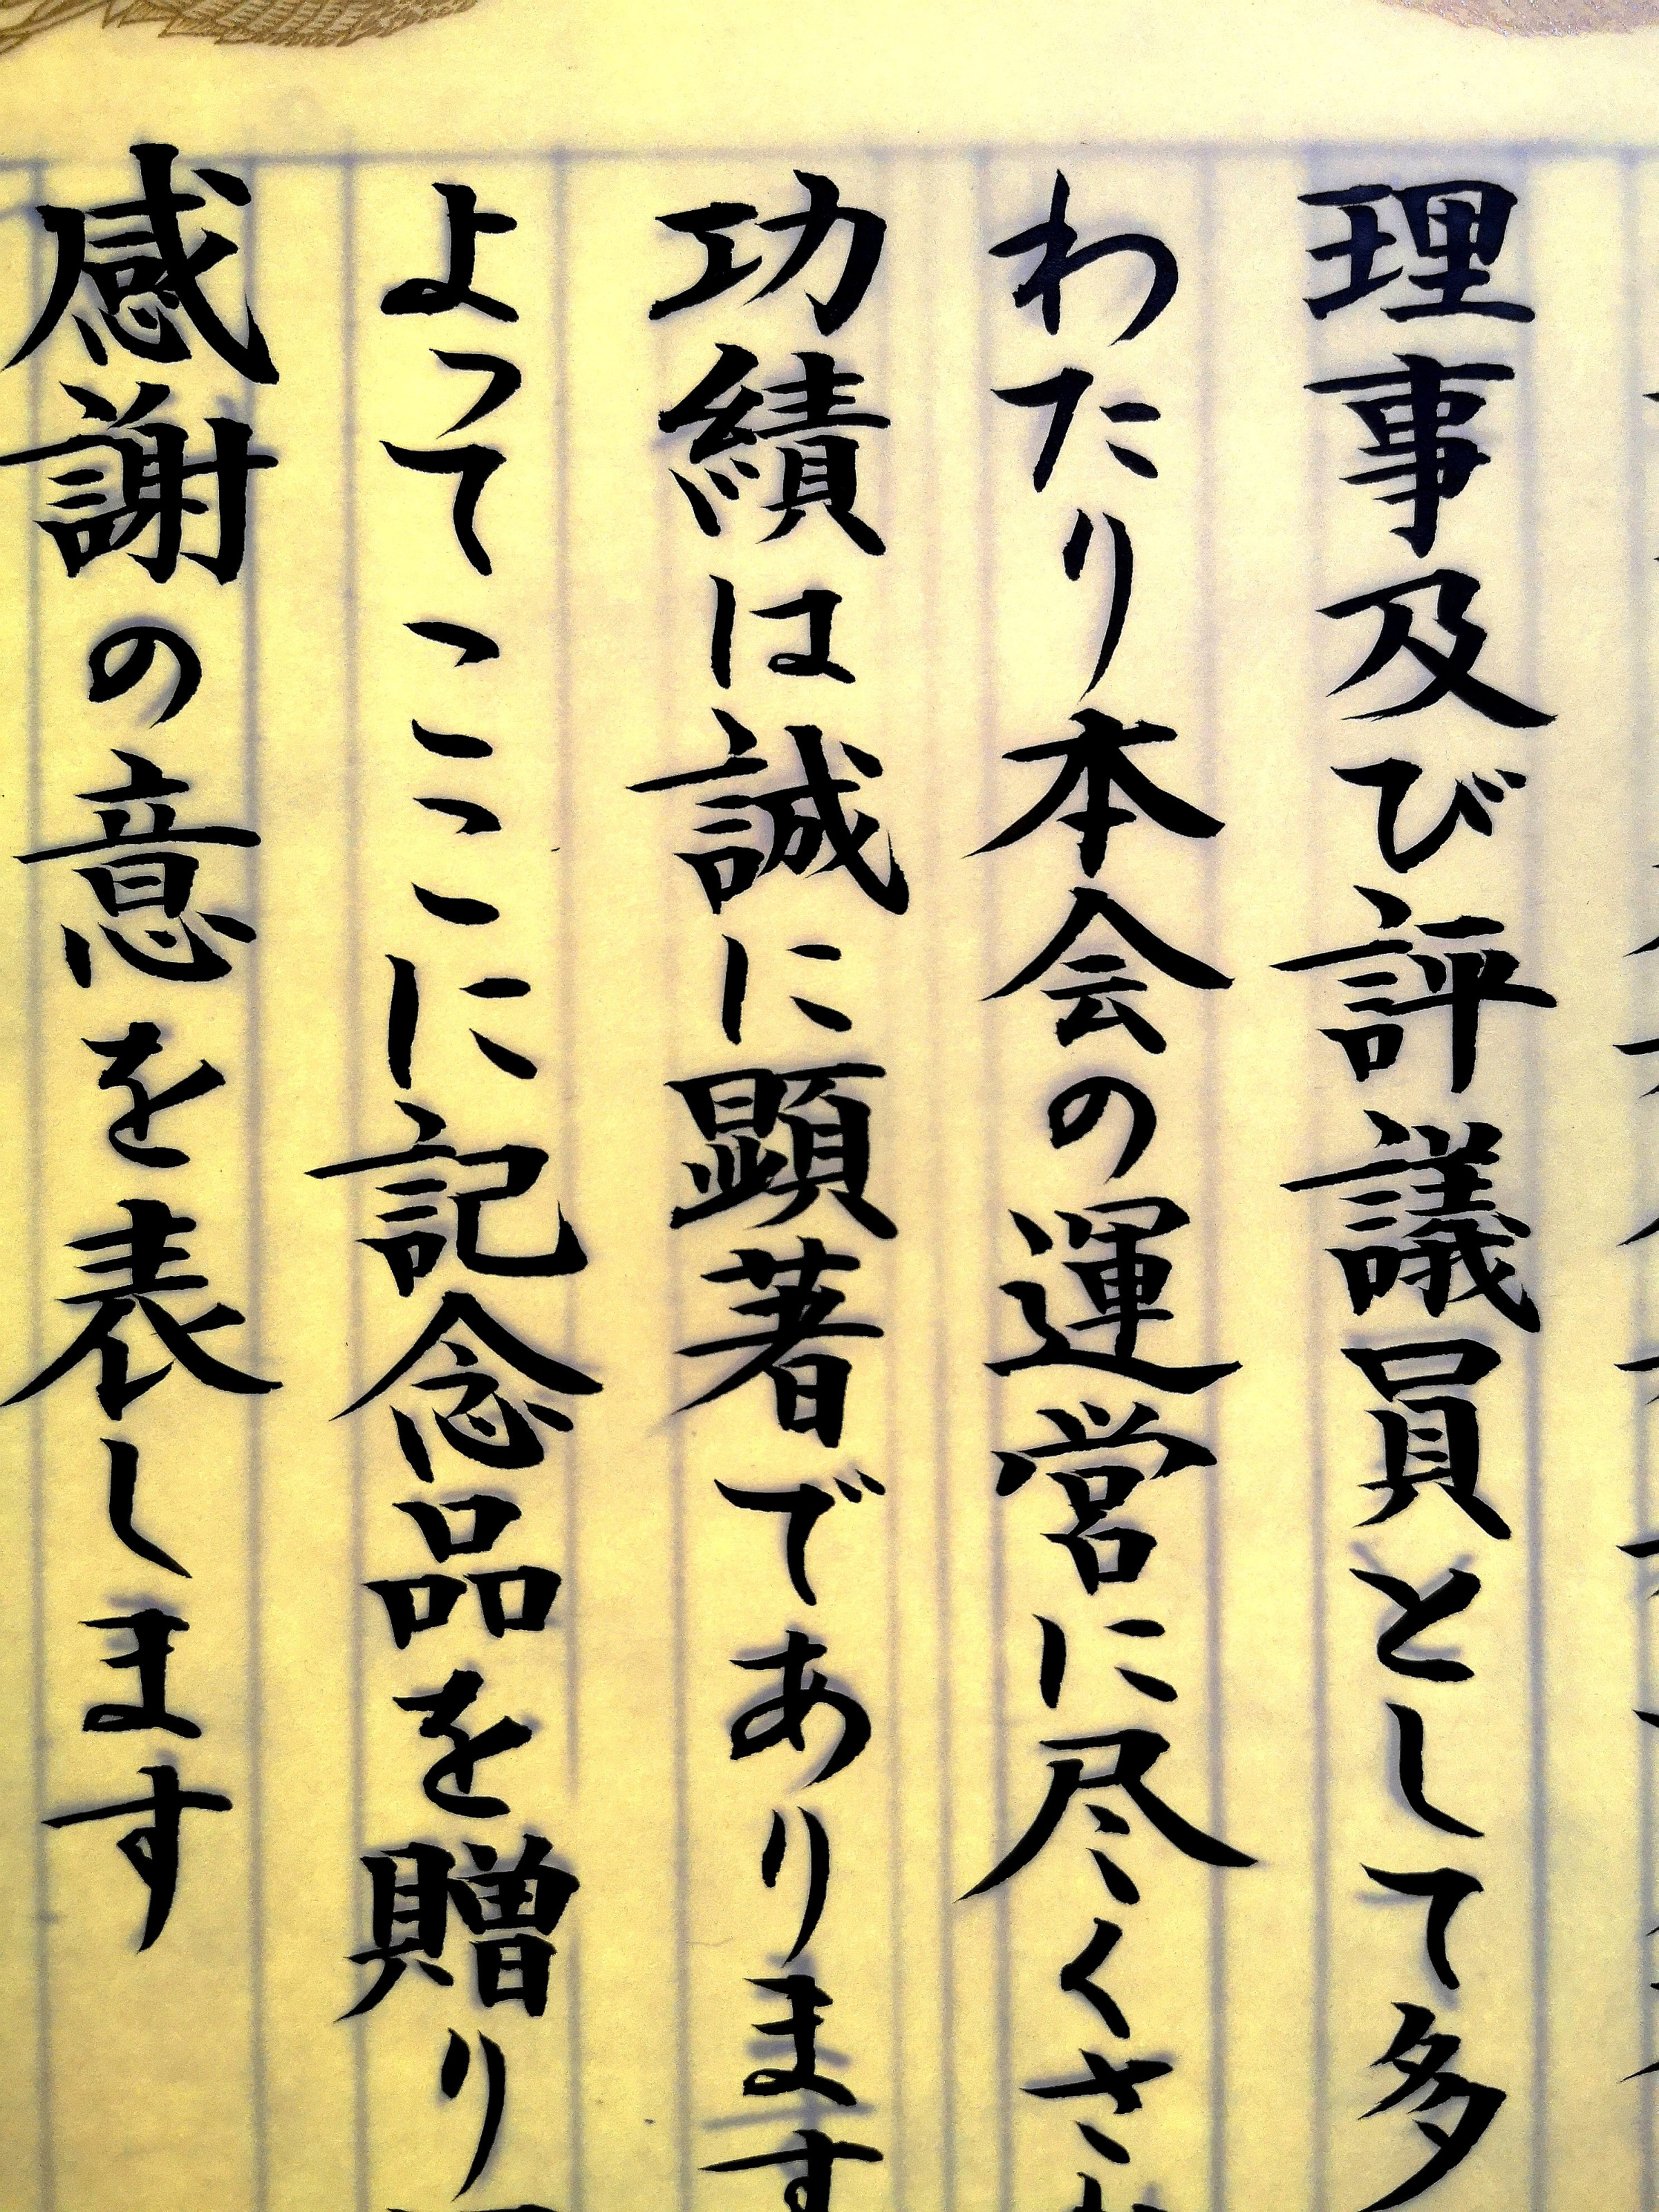 理事及び評議員として多
わたり本会の運営に尽くさ
功績は誠に顕著であります
よってここに記念品を贈り
感謝の意を表します